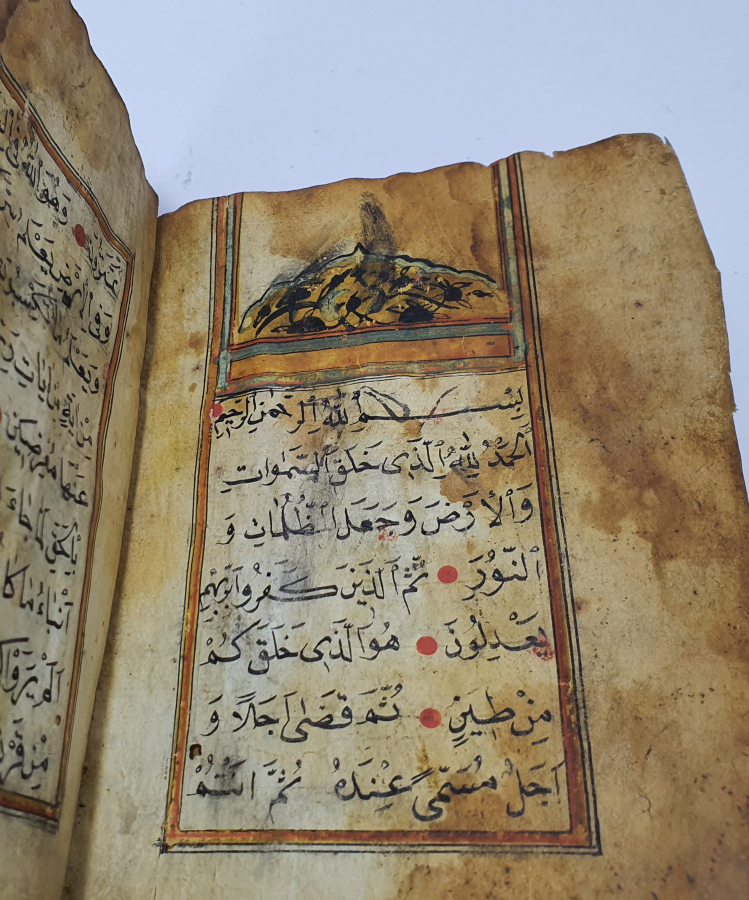 بِسْمِ اللّٰهِ الرَّحْمٰنِ الرَّحِيْمِ
اَلْحَمْدُ لِلّٰهِ الَّذِى خَلَقَ السَّمٰوَاتِ
وَالْاَرْضَ وَجَعَلَ الظُّلُمَاتِ وَ
النُّوْرَ ثُمَّ الَّذِيْنَ كَفَرُوا بِرَبِّهِمْ
يَعْدِلُوْنَ هُوَ الَّذِى خَلَقَكُمْ
مِنْ طِيْنٍ ثُمَّ قَضٰى اَجَلًا وَ
اَجَلٌ مُسَمًّى عِنْدَهُ ثُمَّ اَنْتُمْ
تَمْتَرُوْنَ وَهُوَ اللّٰهُ فِى
وَفِى الْاَرْضِ يَعْلَمُ
وَيَعْلَمُ مَا
مِنْ اٰيَةٍ مِنْ اٰيَاتِ
عَنْهَا مُعْرِضِيْنَ
بِالْحَقِّ لَمَّا جَاءَ
اَنْبَاءُ مَا كَا
اَلَمْ يَرَوْا
مِنْ قَرْنٍ